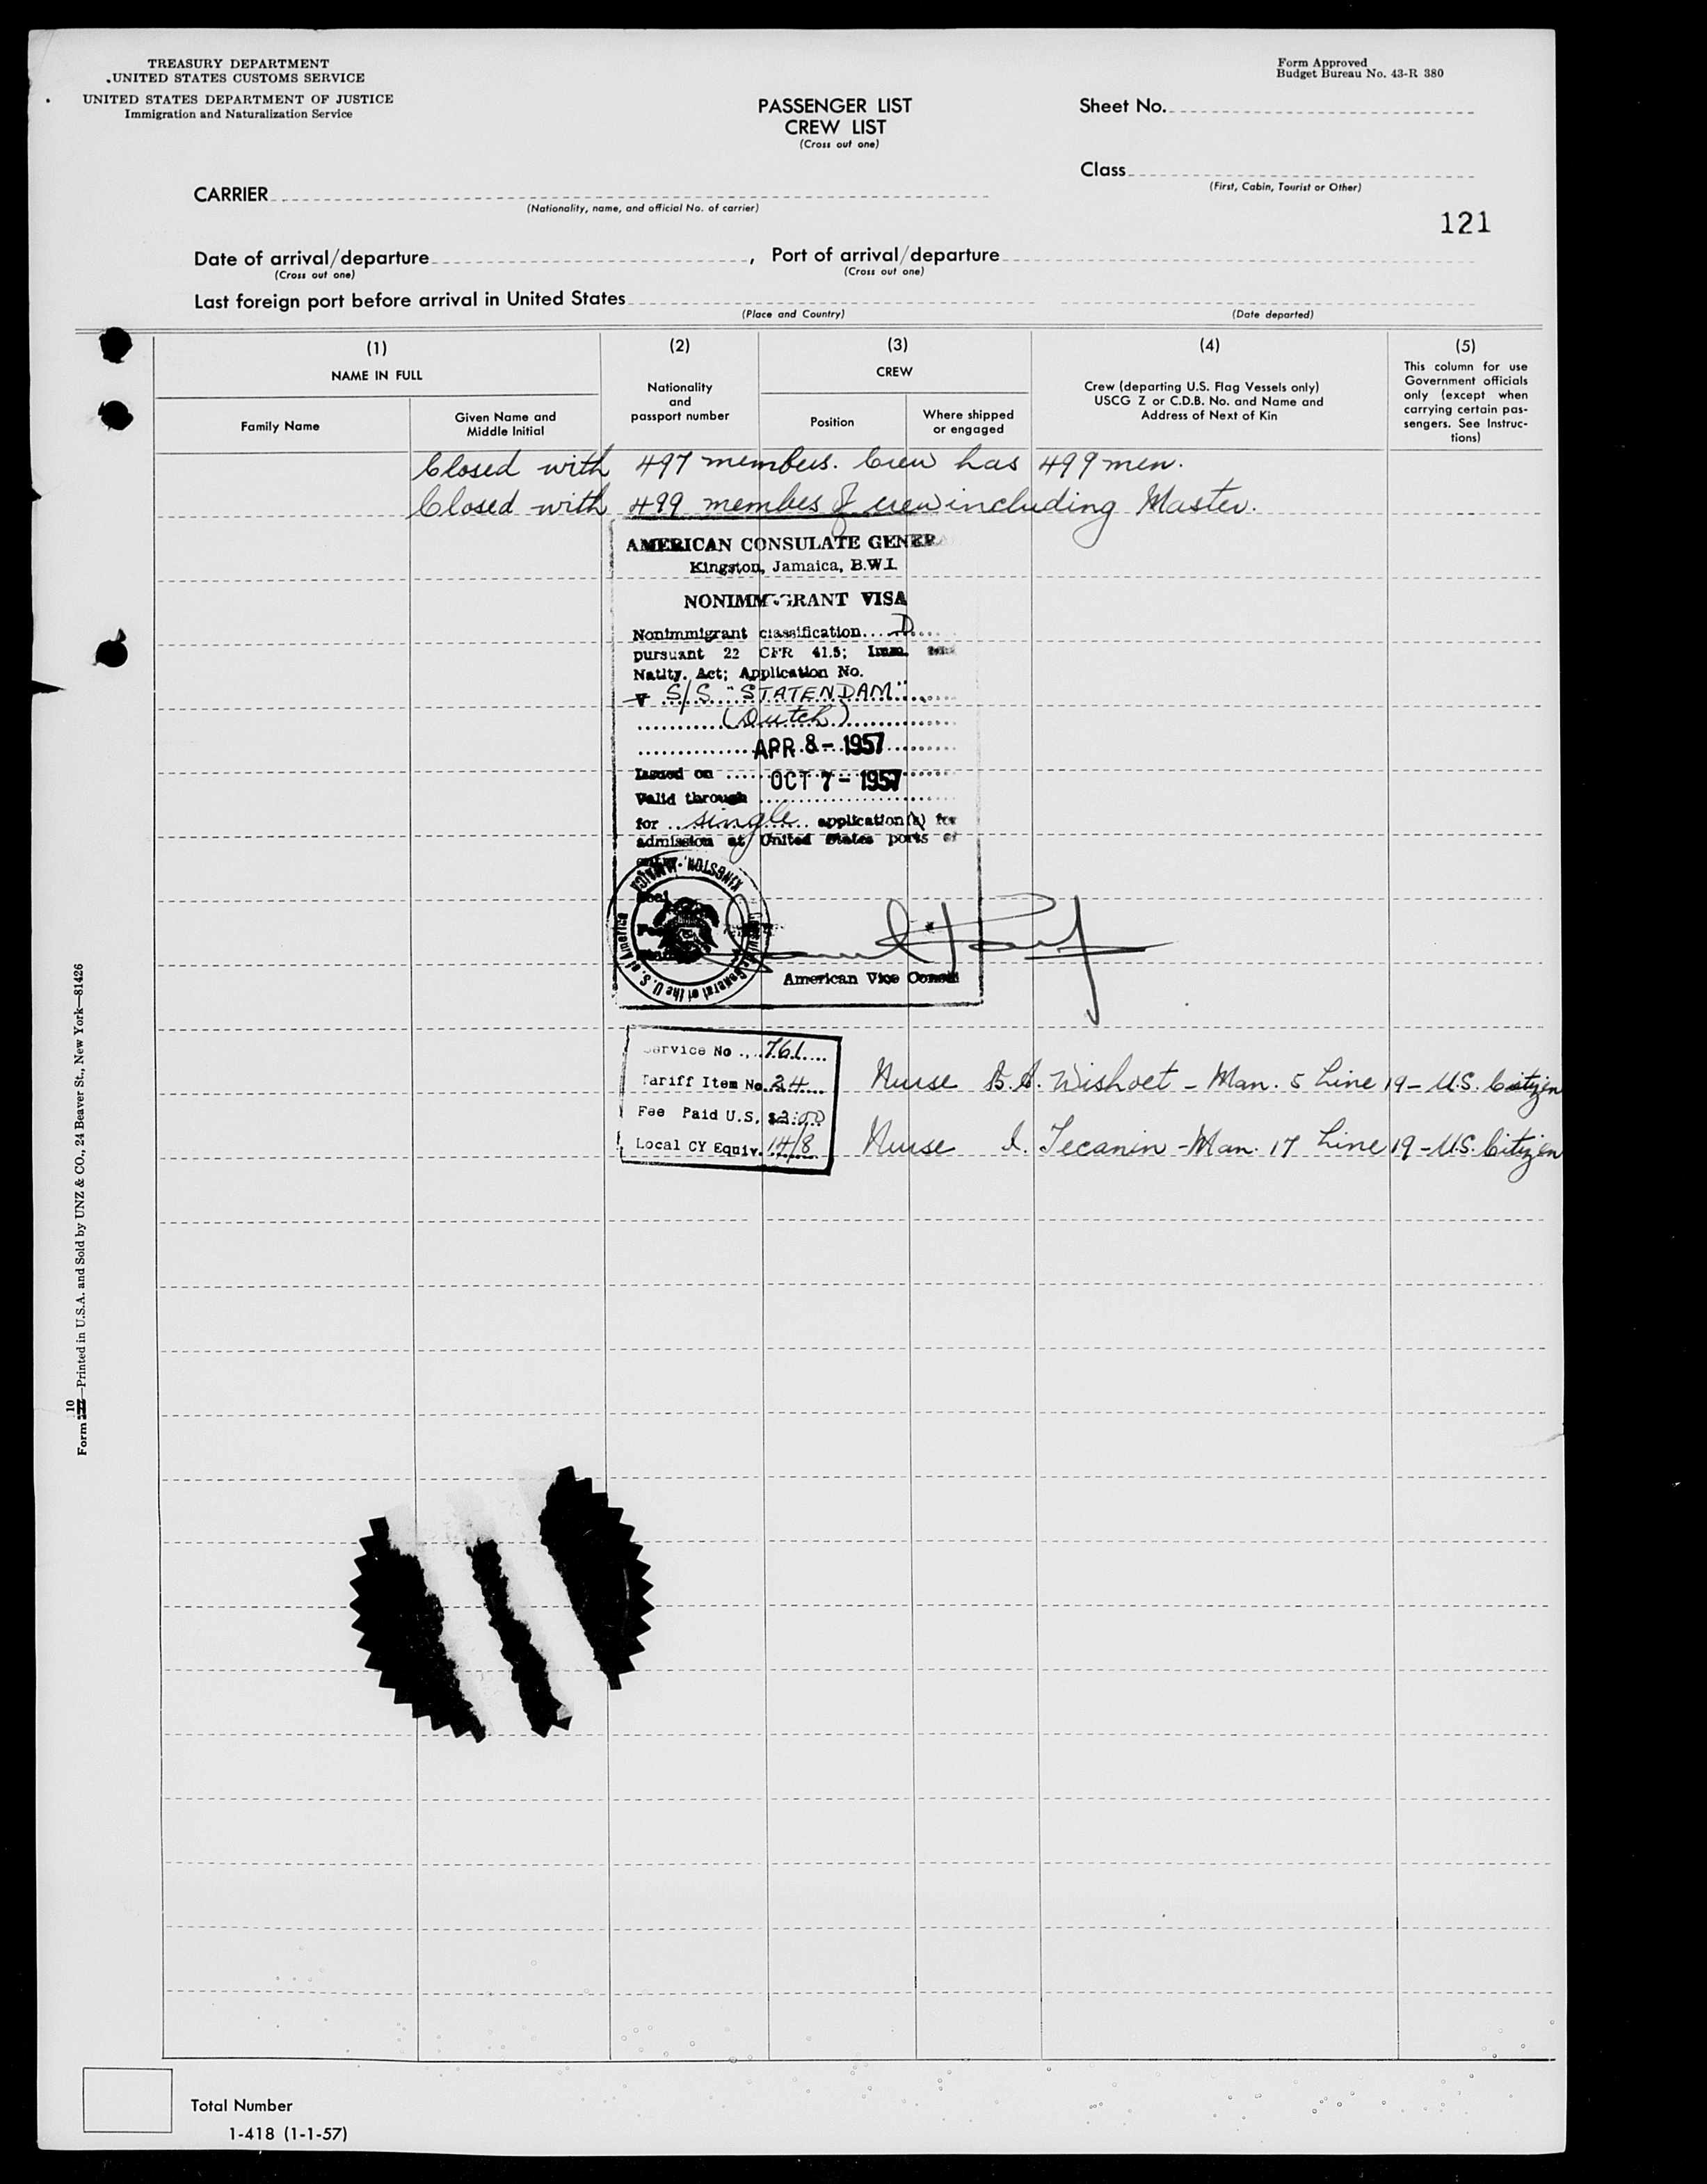 TREASURY DEPARTMENT
UNITED STATES CUSTOMS SERVICE
UNITED STATES DEPARTMENT OF JUSTICE
Immigration and Naturalization Service
Form Approved
Budget Bureau No. 43-R 380
PASSENGER LIST
CREW LIST
(Cross out one)
Sheet No.
Class
(First, Cabin, Tourist or Other)
CARRIER
(Nationality, name, and official No. of carrier)
121
Date of arrival/departure , Port of arrival/departure
(Cross out one) (Cross out one)
Last foreign port before arrival in United States
(Place and Country) (Date departed)
(1) (2) (3) (4) (5)
NAME IN FULL
Family Name
Given Name and
Middle Initial
Nationality
and
passport number
CREW
Position
Where shipped
or engaged
Crew (departing U.S. Flag Vessels only)
USCG Z or C.D.B. No. and Name and
Address of Next of Kin
This column for use
Government officials
only (except when
carrying certain pas-
sengers. See Instruc-
tions)
Closed with 497 members. Crew has 499 men.
Closed with 499 members of crew including Master.
AMERICAN CONSULATE GENER
Kingston, Jamaica, B.W.I.
NONIMMIGRANT VISA
Nonimmigrant classification D
pursuant 22 CFR 41.5; Imm.
Natlty. Act; Application No.
V S/S "STATENDAM"
(Dutch)
APR 8 - 1957
Issued on
OCT 7 - 1957
Valid through
for single application(s) for
admission at United States ports of
entry.
KINGSTON, JAMAICA
Consulate General of the U.S. of America
Seal
American Vice Consul
Service No. 761
Tariff Item No. 24
Fee Paid U.S. $2.00
Local CY Equiv. 14/8
Nurse B. A. Wishoet - Man. 5 Line 19 - U.S. Citizen
Nurse I. Tecanin - Man. 17 Line 19 - U.S. Citizen
Form 10—Printed in U.S.A. and Sold by UNZ & CO., 24 Beaver St., New York—81426
Total Number
1-418 (1-1-57)